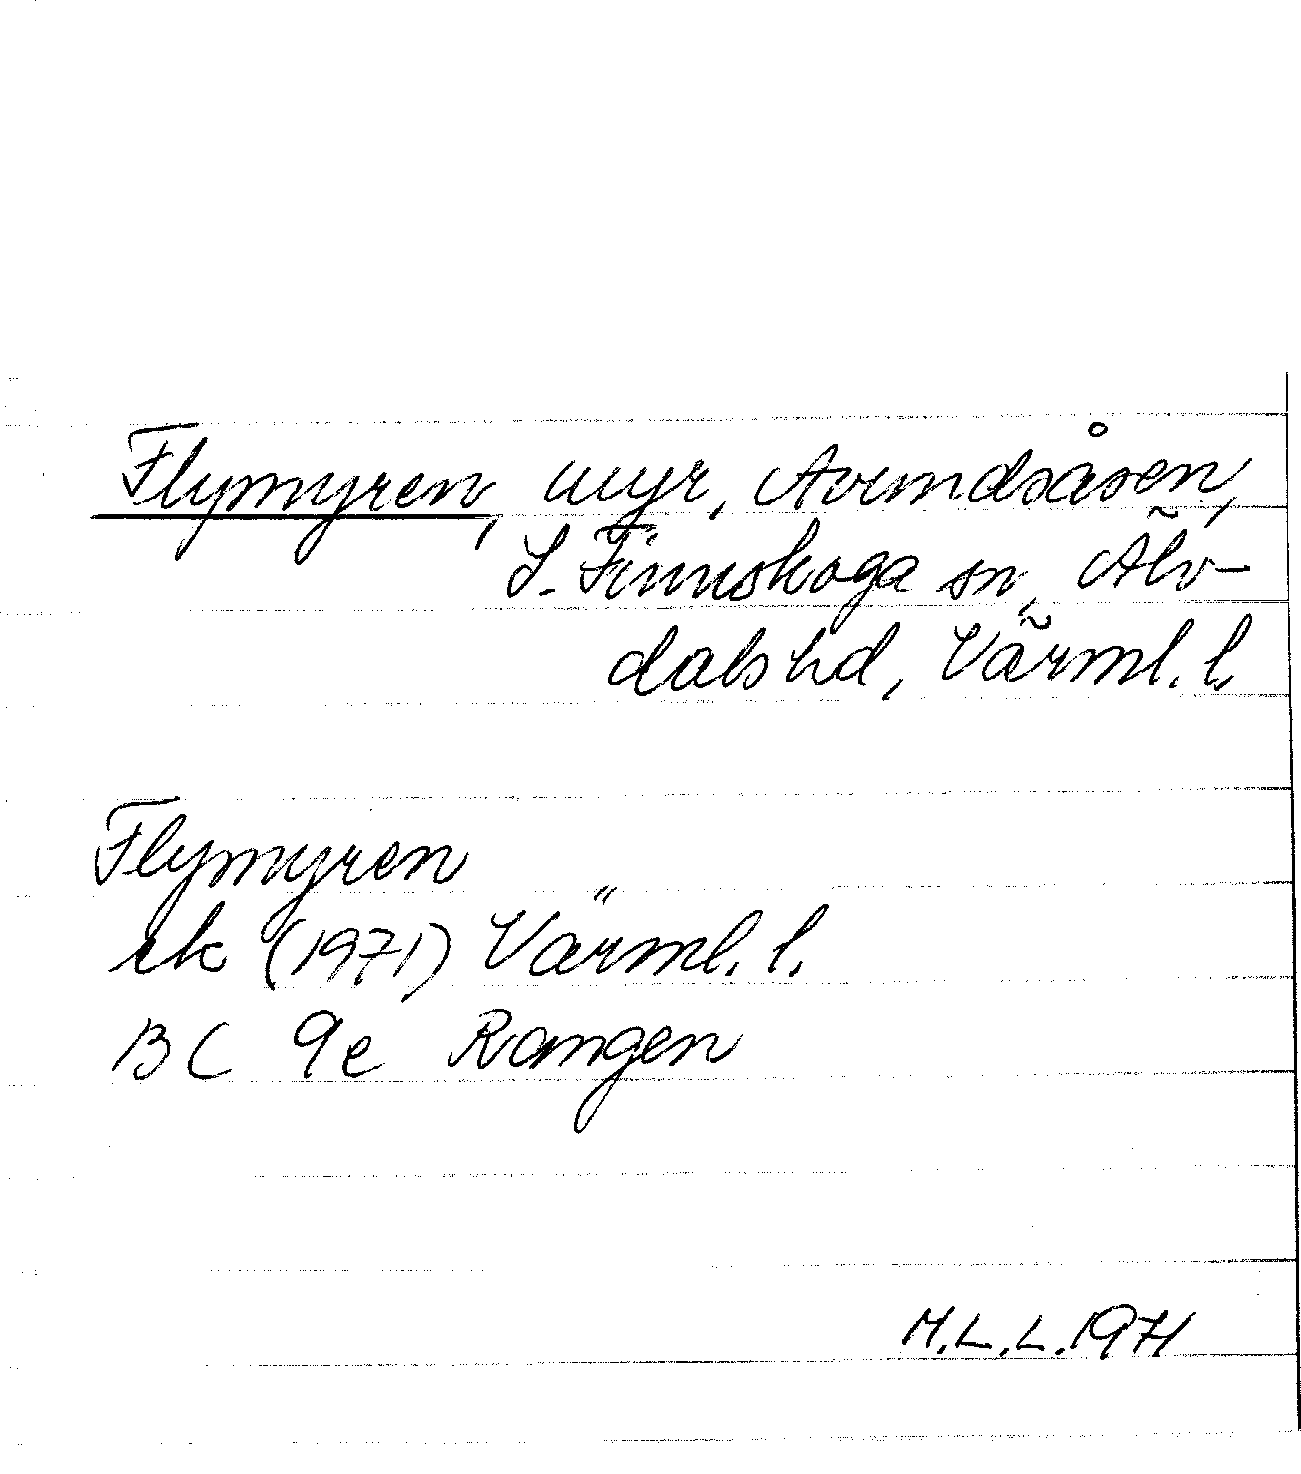 Flymyren, myr, Avundsåsen,
S. Finnskoga sn, Älv-
dals hd, Värml. l.
Flymyren
ek (1971) Värml. l.
BC 9e Rangen
M.L.L. 1971